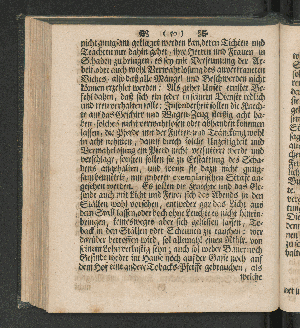 ( 10 )
nicht gnugsam gesteuret werden kan, deren Tichten und
Trachten nur dahin gehet, ihre Herren und Frauen in
Schaden zu bringen, es sey mit Versäumung der Ar-
beit oder auch wohl Verwahrlosung des anvertraueten
Viehes, also deshalb Mängel und Beschwerden nicht
können erzehlet werden: Als gehet Unser ernster Be-
fehl dahin, daß sich ein jeder in seinem Dienste redlich
und treu verhalten solle: Insonderheit sollen die Knech-
te auf das Geschirr und Wagen-Zeug fleißig acht ha-
ben, solches nicht verwahrlosen oder abhanden kommen
lassen, die Pferde mit der Fütter- und Tränckung wohl
in acht nehmen, damit durch solche Unachtsamkeit und
Verwahrlosung ein Pferd nicht
verschlage, sonsten sollen sie zu Erstattung des Scha-
dens angehalten, und wenn sie dazu nicht gnug-
sam bemittelt, mit anderer exemplarischen Strafe an-
gesehen werden. Es sollen die Knechte und das Ge-
sinde auch mit Licht und Feuer sich des Abends in den
Ställen wohl vorsehen, entweder gar das Licht aus
dem Stall lassen, oder doch ohne Leuchte es nicht hinein-
bringen, keinesweges aber sich gelüsten lassen, To-
back in den Ställen oder Scheunen zu rauchen: wer
darüber betroffen wird, soll allemahl einen Rthlr. von
seinem Lohn verlustig seyn; auch soll weder Bauer noch
Gesinde weder im Hause noch ausser Hause noch auf
dem Hof eine andere Tobacks-Pfeiffe gebrauchen, als
welche